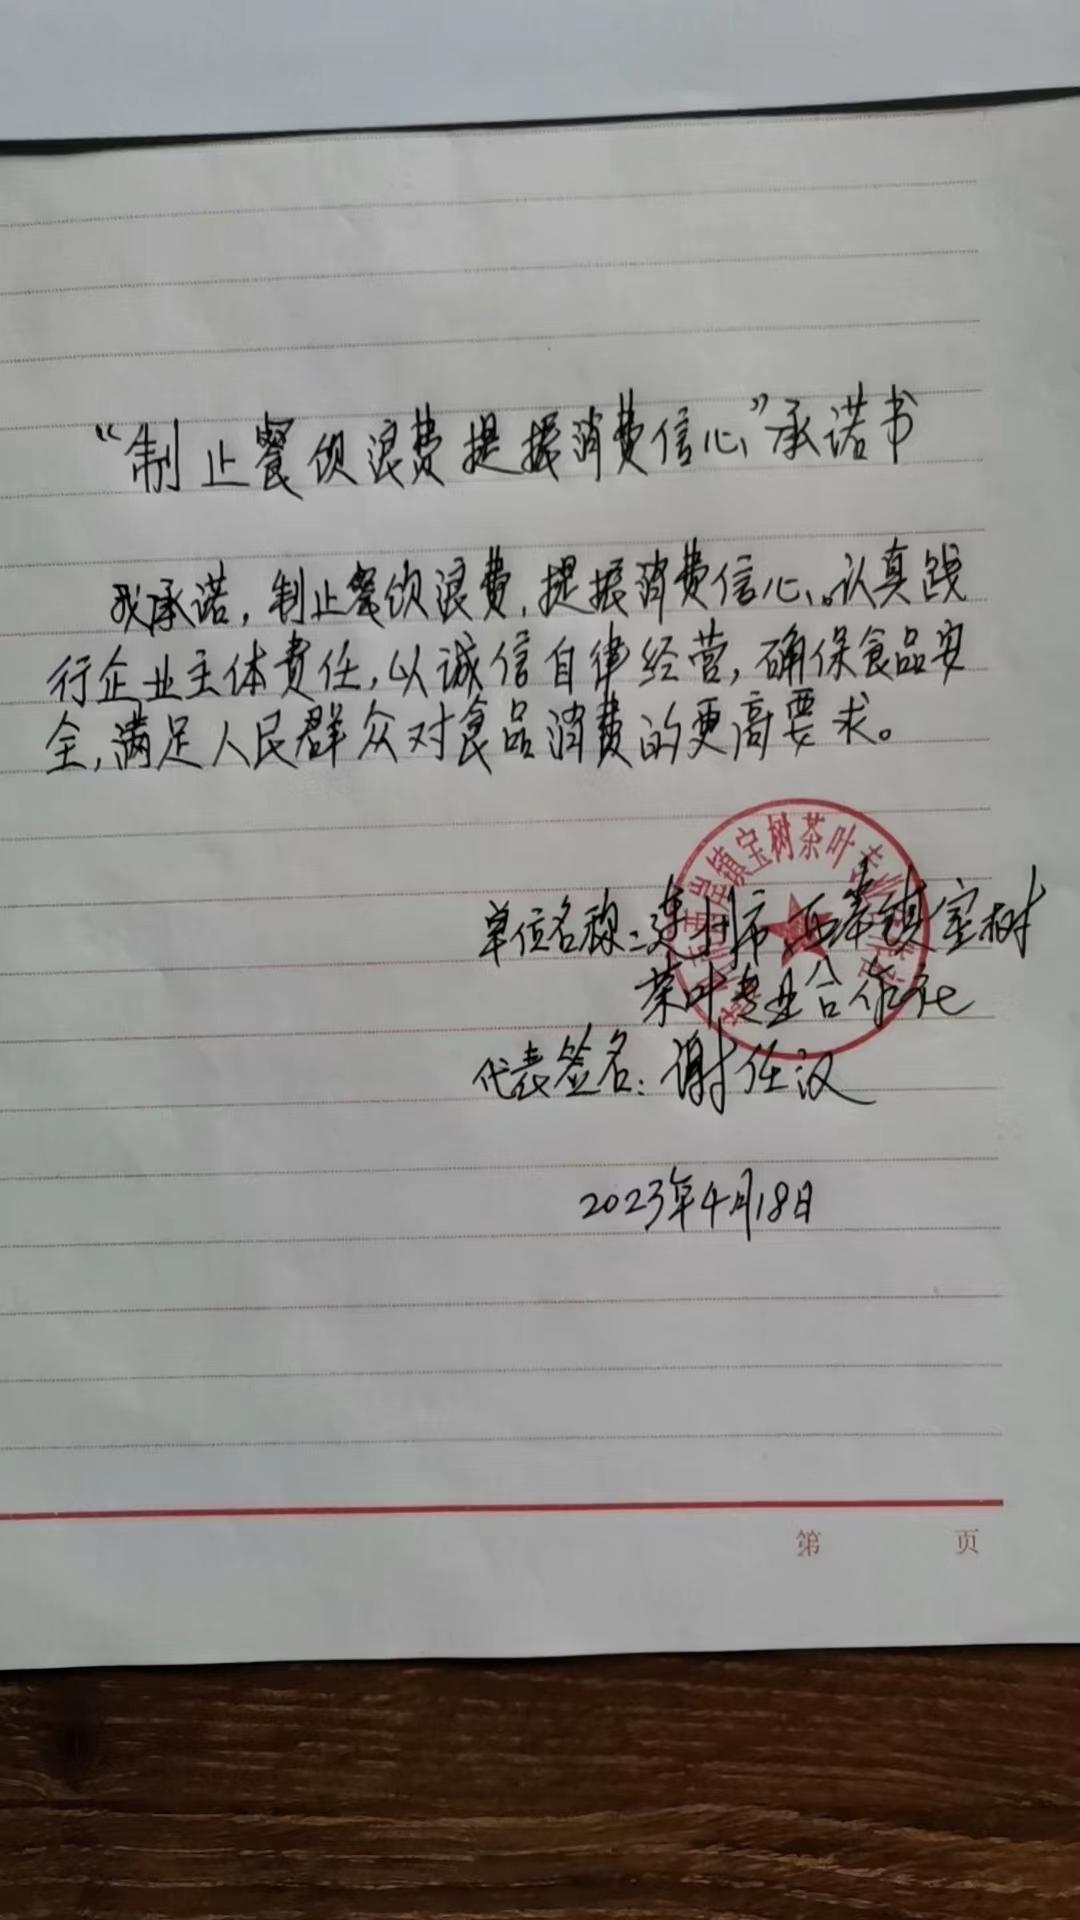 “制止餐饮浪费提振消费信心”承诺书
我承诺，制止餐饮浪费，提振消费信心。认真践
行企业主体责任，以诚信自律经营，确保食品安
全，满足人民群众对食品消费的更高要求。
镇宝树茶叶专
单位名称：连州市西岸镇宝树
茶叶专业合作社
代表签名：谢任汉
2023年4月18日
第 页